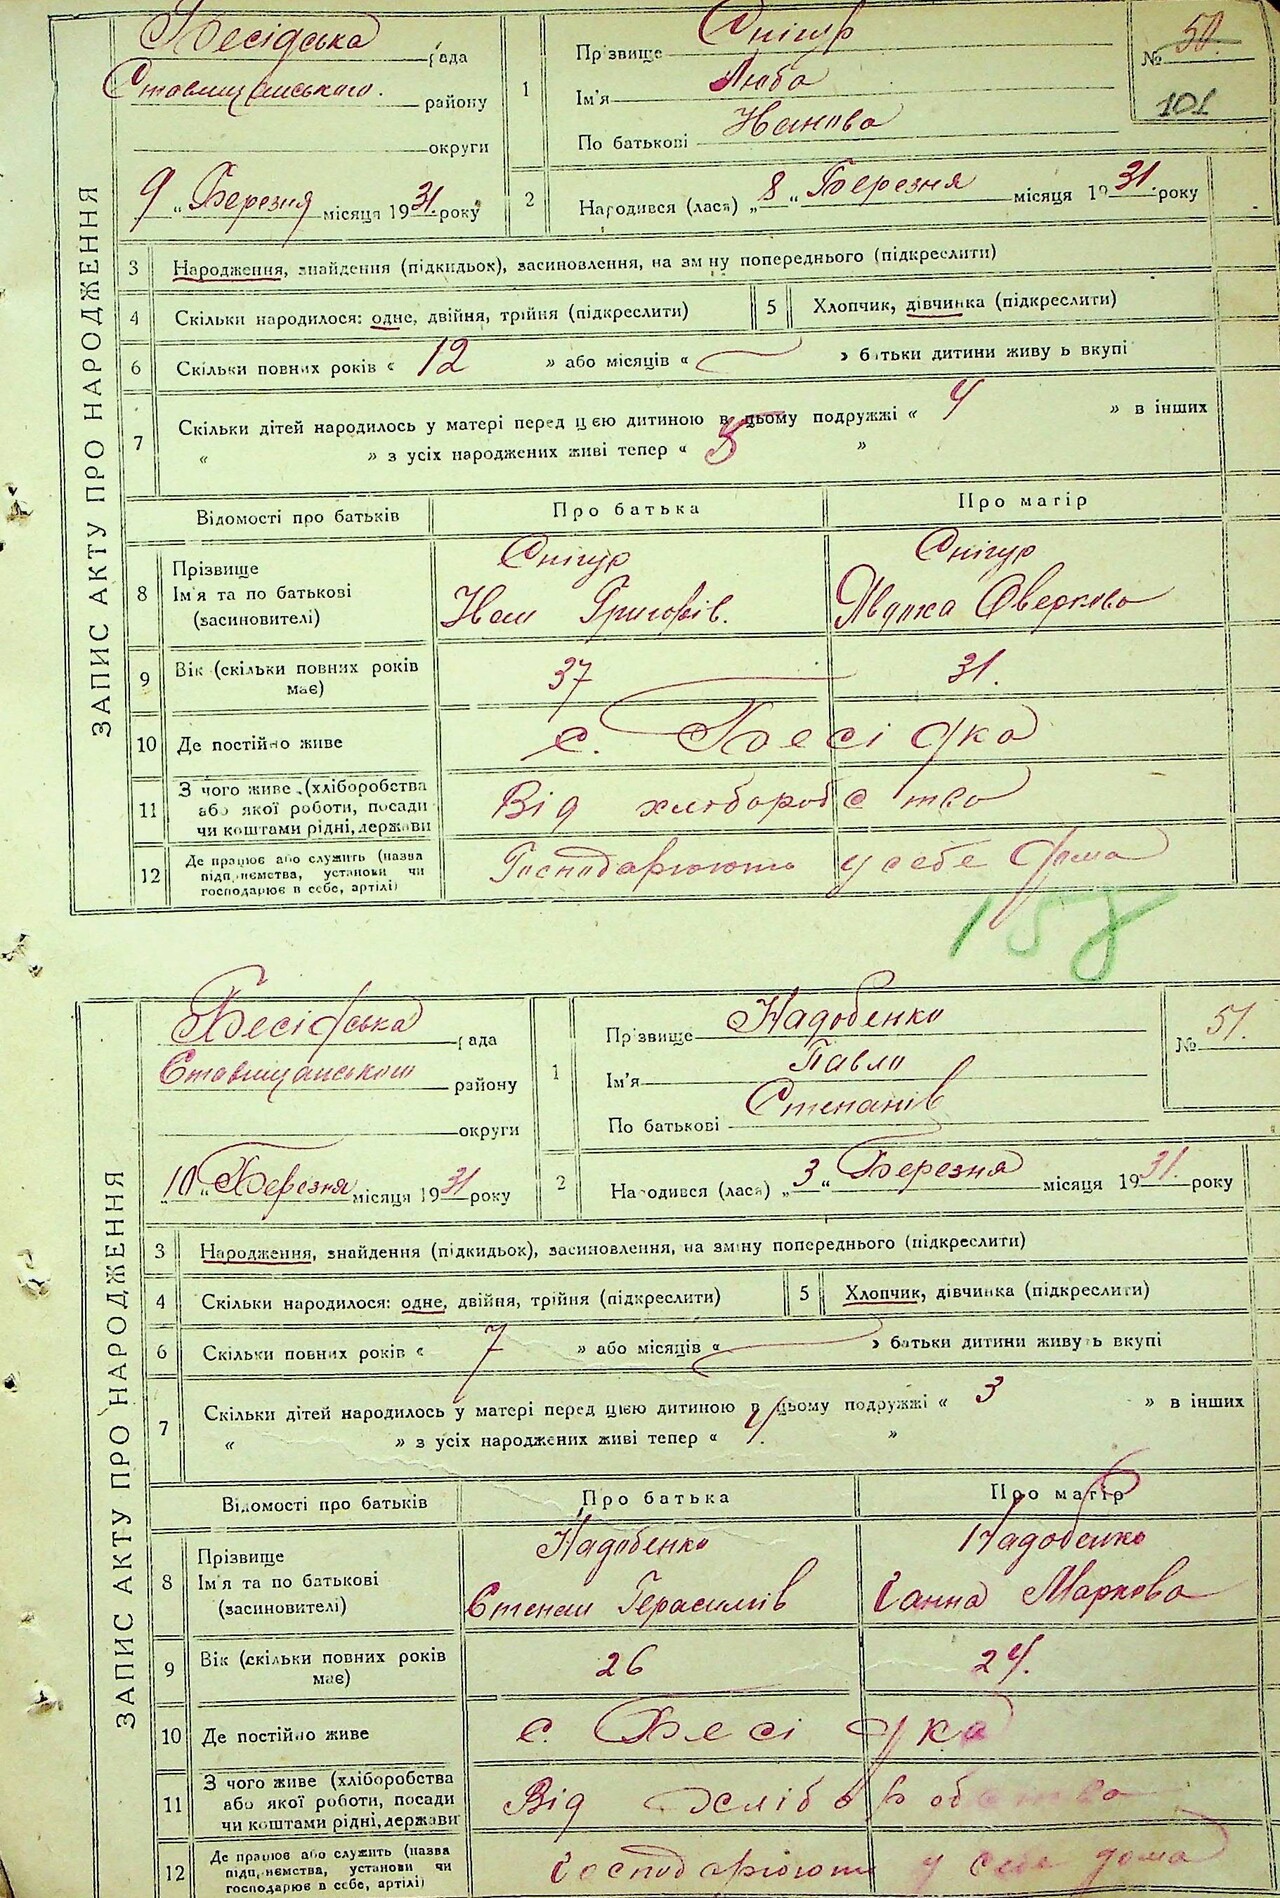 ЗАПИС АКТУ ПРО НАРОДЖЕННЯ
Бесідська рада
Ставищанського району
округи
9 „ Березня місяця 1931 року
1
Прізвище Снігур
Ім'я Люба
По батькові Іванова
№ 50
101
2
Народився (лася) „ 8 “ Березня місяця 1931. року
3 Народження, знайдення (підкидьок), засиновлення, на зміну попереднього (підкреслити)
4 Скільки народилося: одне, двійня, трійня (підкреслити) 5 Хлопчик, дівчинка (підкреслити)
6 Скільки повних років « 12 » або місяців « » батьки дитини живуть вкупі
7 Скільки дітей народилось у матері перед цією дитиною в цьому подружжі « 4 » в інших
« » з усіх народжених живі тепер « 5 »
Відомості про батьків Про батька Про матір
8 Прізвище Снігур Снігур
Ім'я та по батькові Іван Григорів. Явдоха Оверкова
(засиновителі)
9 Вік (скільки повних років має) 37 31.
10 Де постійно живе с. Бесідка
11 З чого живе (хліборобства
або якої роботи, посади Від хліборобство
чи коштами рідні, держави
12 Де працює або служить (назва
підприємства, установи чи Господарюють у себе дома
господарює в себе, артілі)
158
ЗАПИС АКТУ ПРО НАРОДЖЕННЯ
Бесідська рада
Ставищанського району
округи
„ 10 “ Березня місяця 1931 року
1
Прізвище Надобенко
Ім'я Павло
По батькові Степанів
№ 51.
2
Народився (лася) „ 3 “ Березня місяця 1931. року
3 Народження, знайдення (підкидьок), засиновлення, на зміну попереднього (підкреслити)
4 Скільки народилося: одне, двійня, трійня (підкреслити) 5 Хлопчик, дівчинка (підкреслити)
6 Скільки повних років « 7 » або місяців « » батьки дитини живуть вкупі
7 Скільки дітей народилось у матері перед цією дитиною в цьому подружжі « 3 » в інших
« » з усіх народжених живі тепер « 4. »
Відомості про батьків Про батька Про матір
8 Прізвище Надобенко Надобенко
Ім'я та по батькові Степан Герасимів Ганна Маркова
(засиновителі)
9 Вік (скільки повних років має) 26 24.
10 Де постійно живе с. Бесідка
11 З чого живе (хліборобства
або якої роботи, посади Від хліборобство
чи коштами рідні, держави
12 Де працює або служить (назва
підприємства, установи чи Господарюють у себе дома
господарює в себе, артілі)